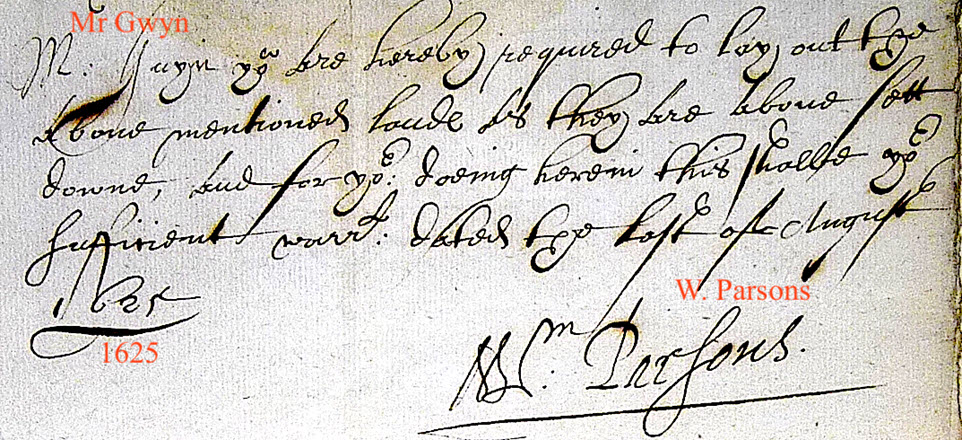 Mr Gwyn
Mr: Guyn yor are hereby required to lay out the
above mentioned lands as they are above sett
downe, and for yor: doeing herein this shalbe yor
sufficient warrt: dated the last of August
1625
W. Parsons
1625
Wm: Parsons.